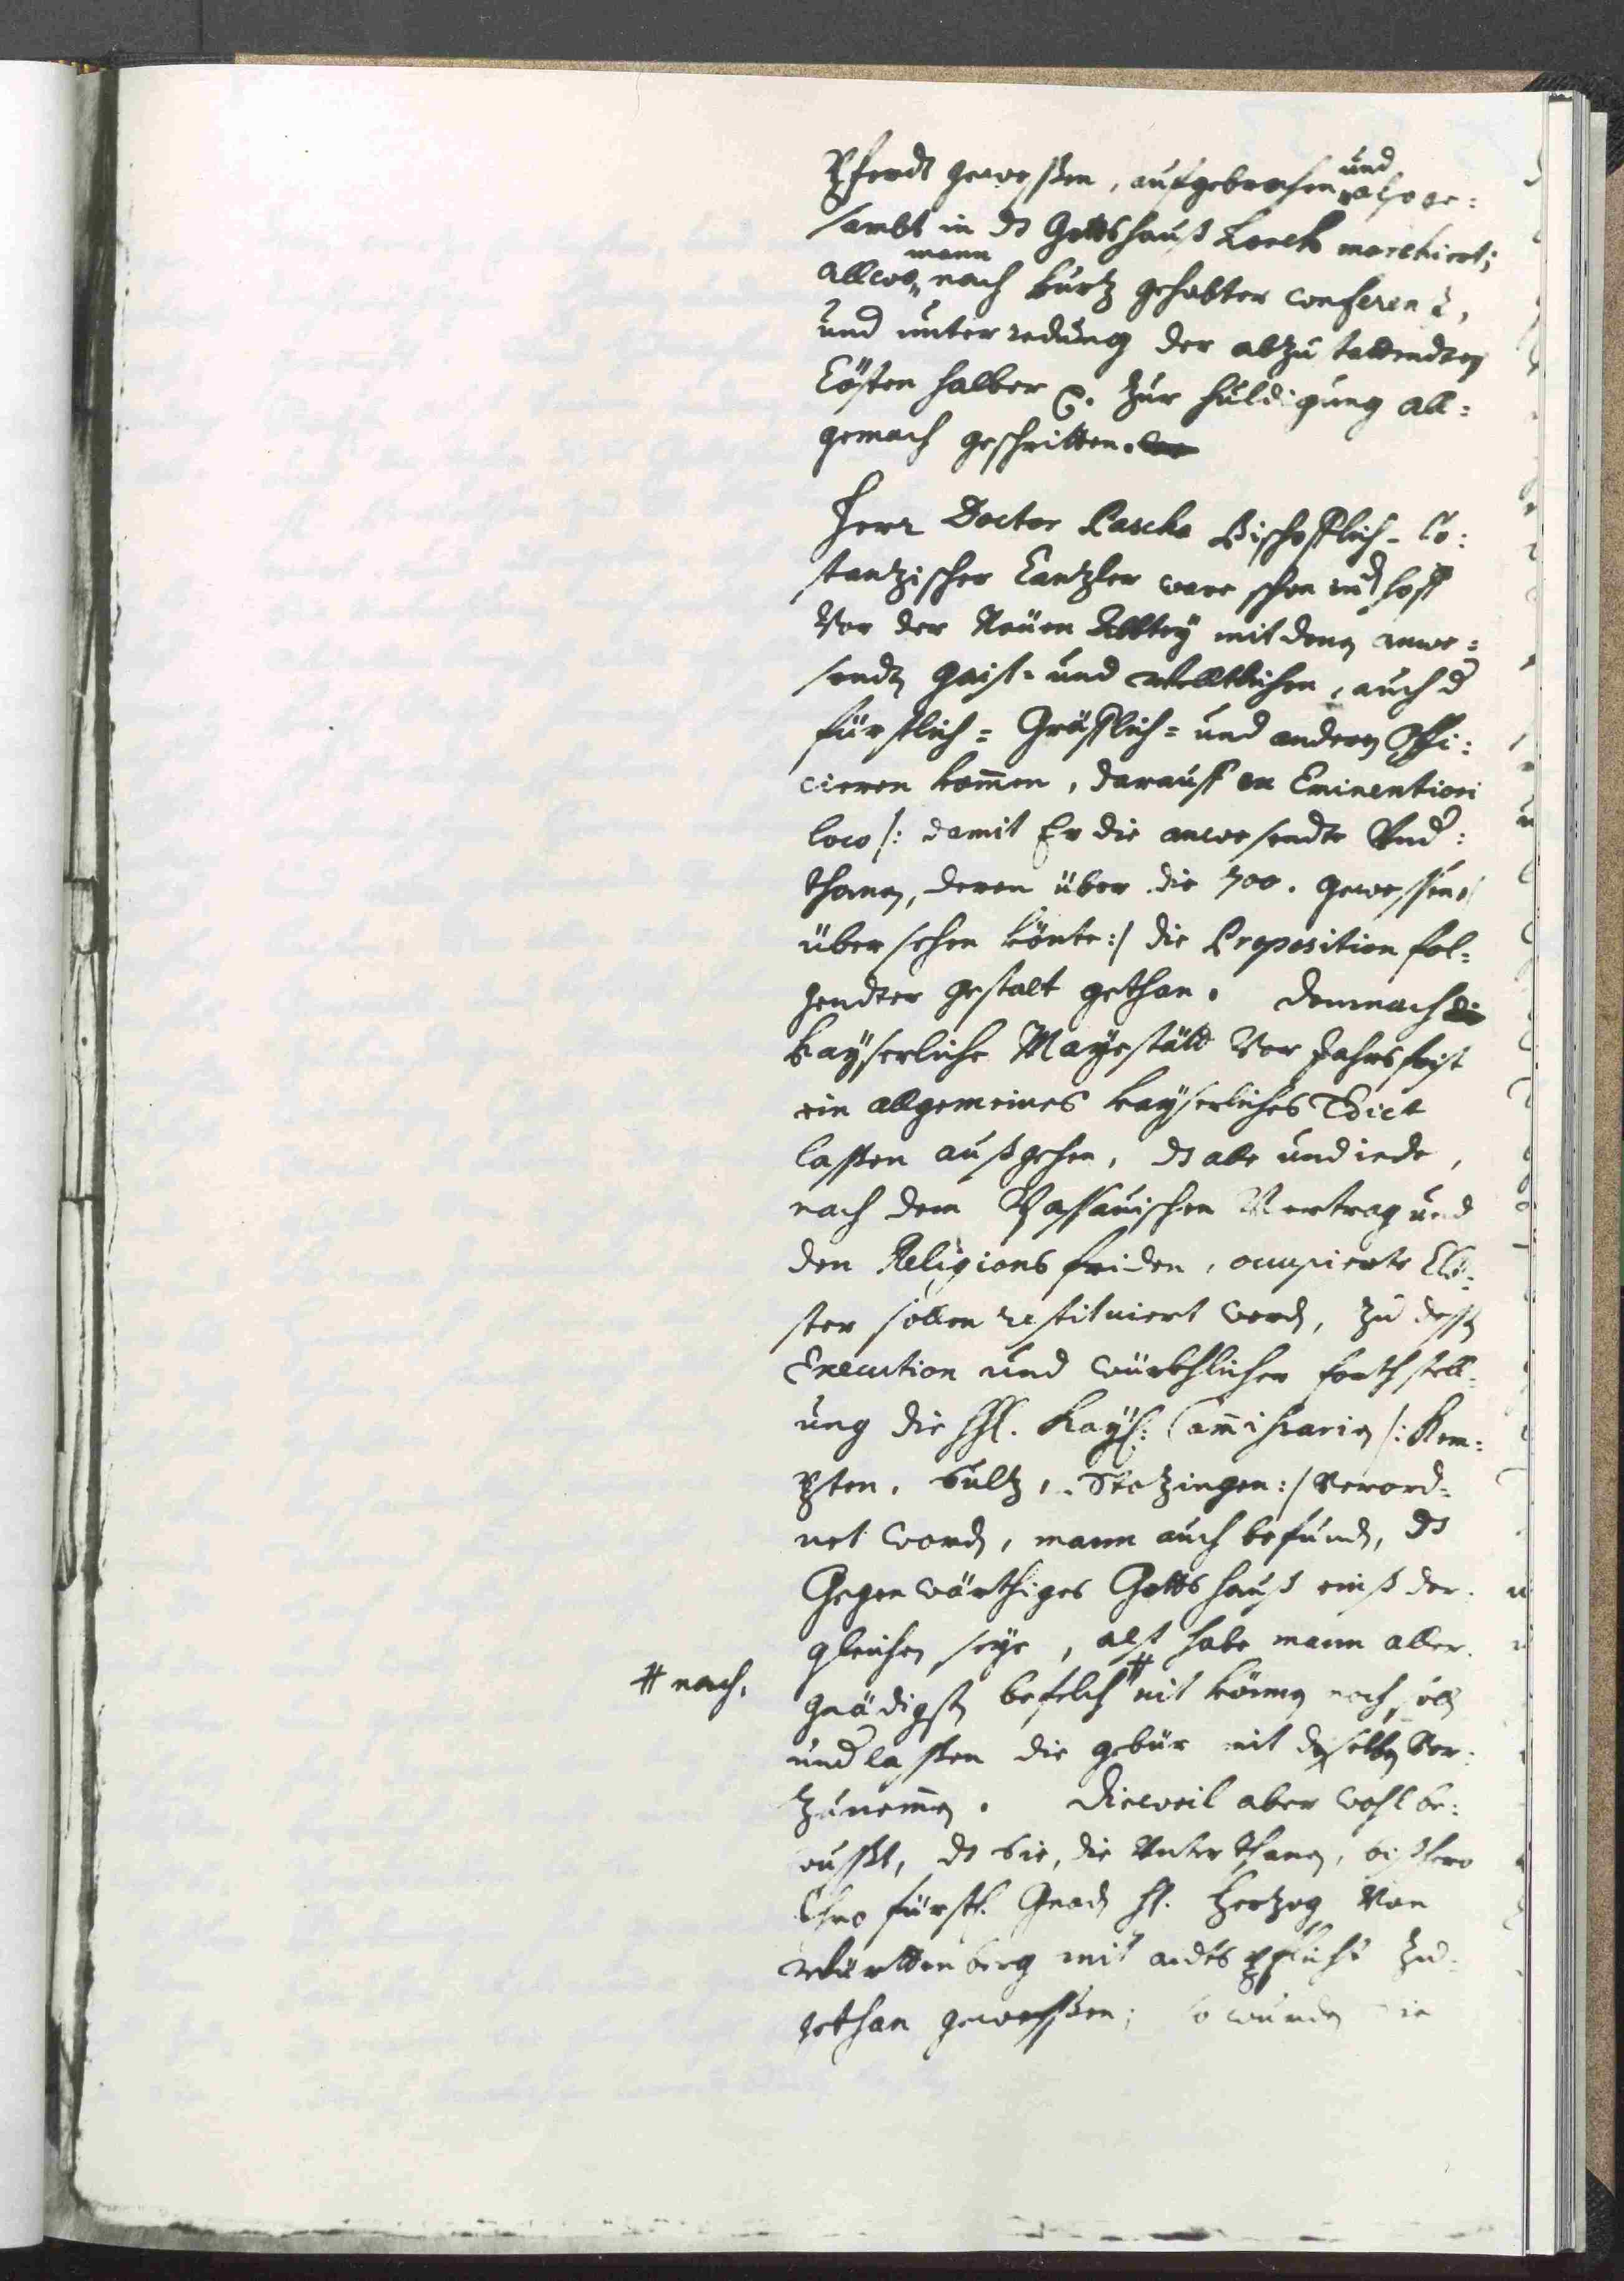 Pferdt gewessen, aufgebrochen und also ge=
sambt in ds Gottshauß Lorch marchiert;
allwo mann nach kurtz gehabter conferenz,
und unterredung der abzustattendten
Cösten halber &. zur huldigung all=
gemach geschritten.
Herr Doctor Pascha Bischofflich-Co=
stantzischer Cantzler ware schon im hoff
Vor der Neüen Abbtey mit denen anwe=
sendten Geist- und Welltlichen, auch d
fürstlich= Gräfflich= und anderen Offi=
cieren kommen, darauff ex Eminentiori
loco /: damit Er die anwesendte Und=
thanen, deren über die 700. gewessen,
übersehen könte:/ die Proposition fol=
gendter gestalt gethan. Demnach die
Kayserliche Mayestätt Vor Jahrsfrist
ein allgemeines Kayserliches Edict
lassen außgehen, ds alle und iede,
nach dem Passauischen Vertrag und
den Religions friden, occupierte Clö=
ster sollen restituiert werden, zu dessen
Execution und würkhlicher forthstell=
ung die HH. Kays: Commissarien /: Kem=
pten, Sultz, Stotzingen:/ Verord=
net worden, mann auch befunden, ds
Gegenwärthiges Gottshauß eins der=
gleichen seye, alß habe mann aller=
gnädigsten befelch # nit können noch sollen
# nach.
underlassen die gebür mit denselben Vor=
zunemmen. Dieweil aber wohl be=
wusst, ds Sie, die Unterthanen, bißhero
Ihro fürstl. Gnaden H. Hertzog Von
Württenberg mit aidtspflicht zu=
gethan gewessen; so wurden Sie